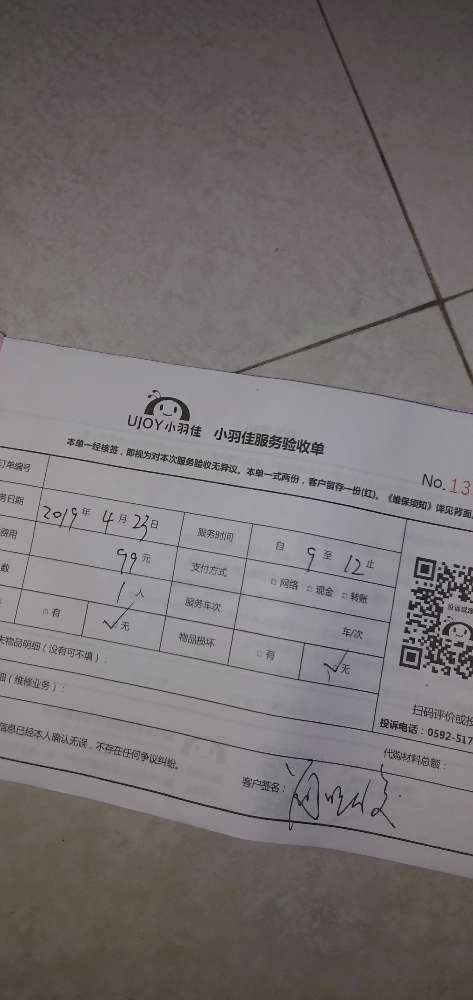 UJOY小羽佳 小羽佳服务验收单
本单一经核签，即视为对本次服务验收无异议。本单一式两份，客户留存一份(红)，《维保须知》详见背面
No.13
订单编号
务日期 2019年4月23日 服务时间 自 9 至 12 止
费用 99元 支付方式 □网络 □现金 □转账
数 1人 服务车次 车/次
□有 ✓无 物品损坏 □有 ✓无
失物品明细（没有可不填）：
细（维修业务）：
代购材料总额：
信息已经本人确认无误，不存在任何争议纠纷。
客户签名：
投诉或
扫码评价或投
投诉电话：0592-517